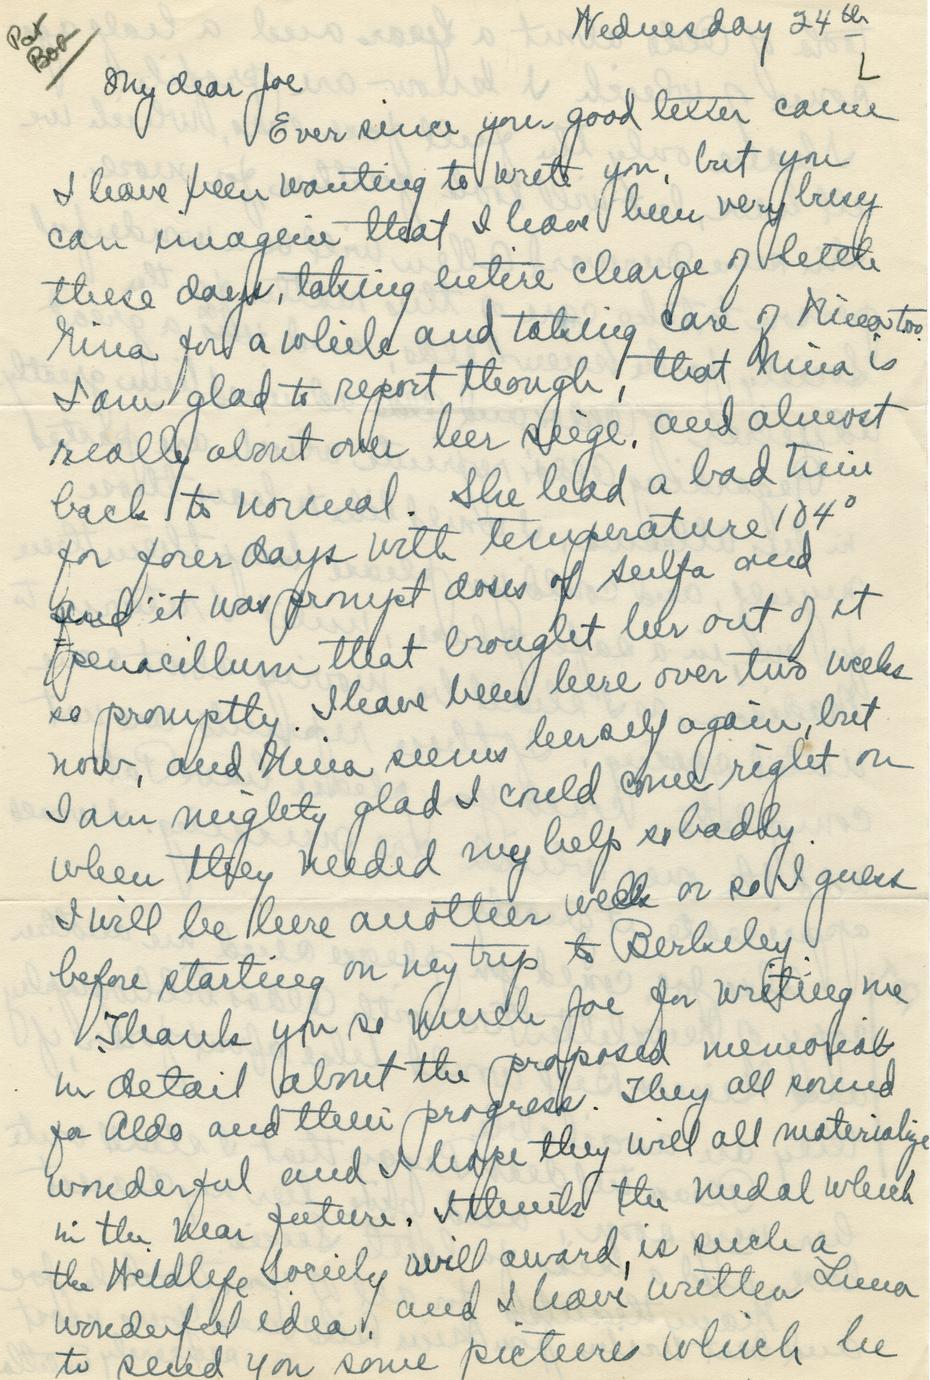 Pat
Bob
Wednesday 24th
L
My dear Joe
Ever since your good letter came
I have been wanting to write you, but you
can imagine that I have been very busy
these days, taking entire charge of little
Nina for a while and taking care of Nina too.
I am glad to report though, that Nina is
really about over her siege, and almost
back to normal. She had a bad time
for four days with temperature 104°
and it was prompt doses of sulfa and
penacillum that brought her out of it
so promptly. I have been here over two weeks
now, and Nina seems herself again, but
I am mighty glad I could come right on
when they needed my help so badly.
I will be here another week or so I guess
before starting on my trip to Berkeley
Thank you so much Joe for writing me
in detail about the proposed memorials
for Aldo and their progress. They all sound
wonderful and I hope they will all materialize
in the near future. I think the medal which
the Wildlife Society will award, is such a
wonderful idea, and I have written Luna
to send you some pictures which he